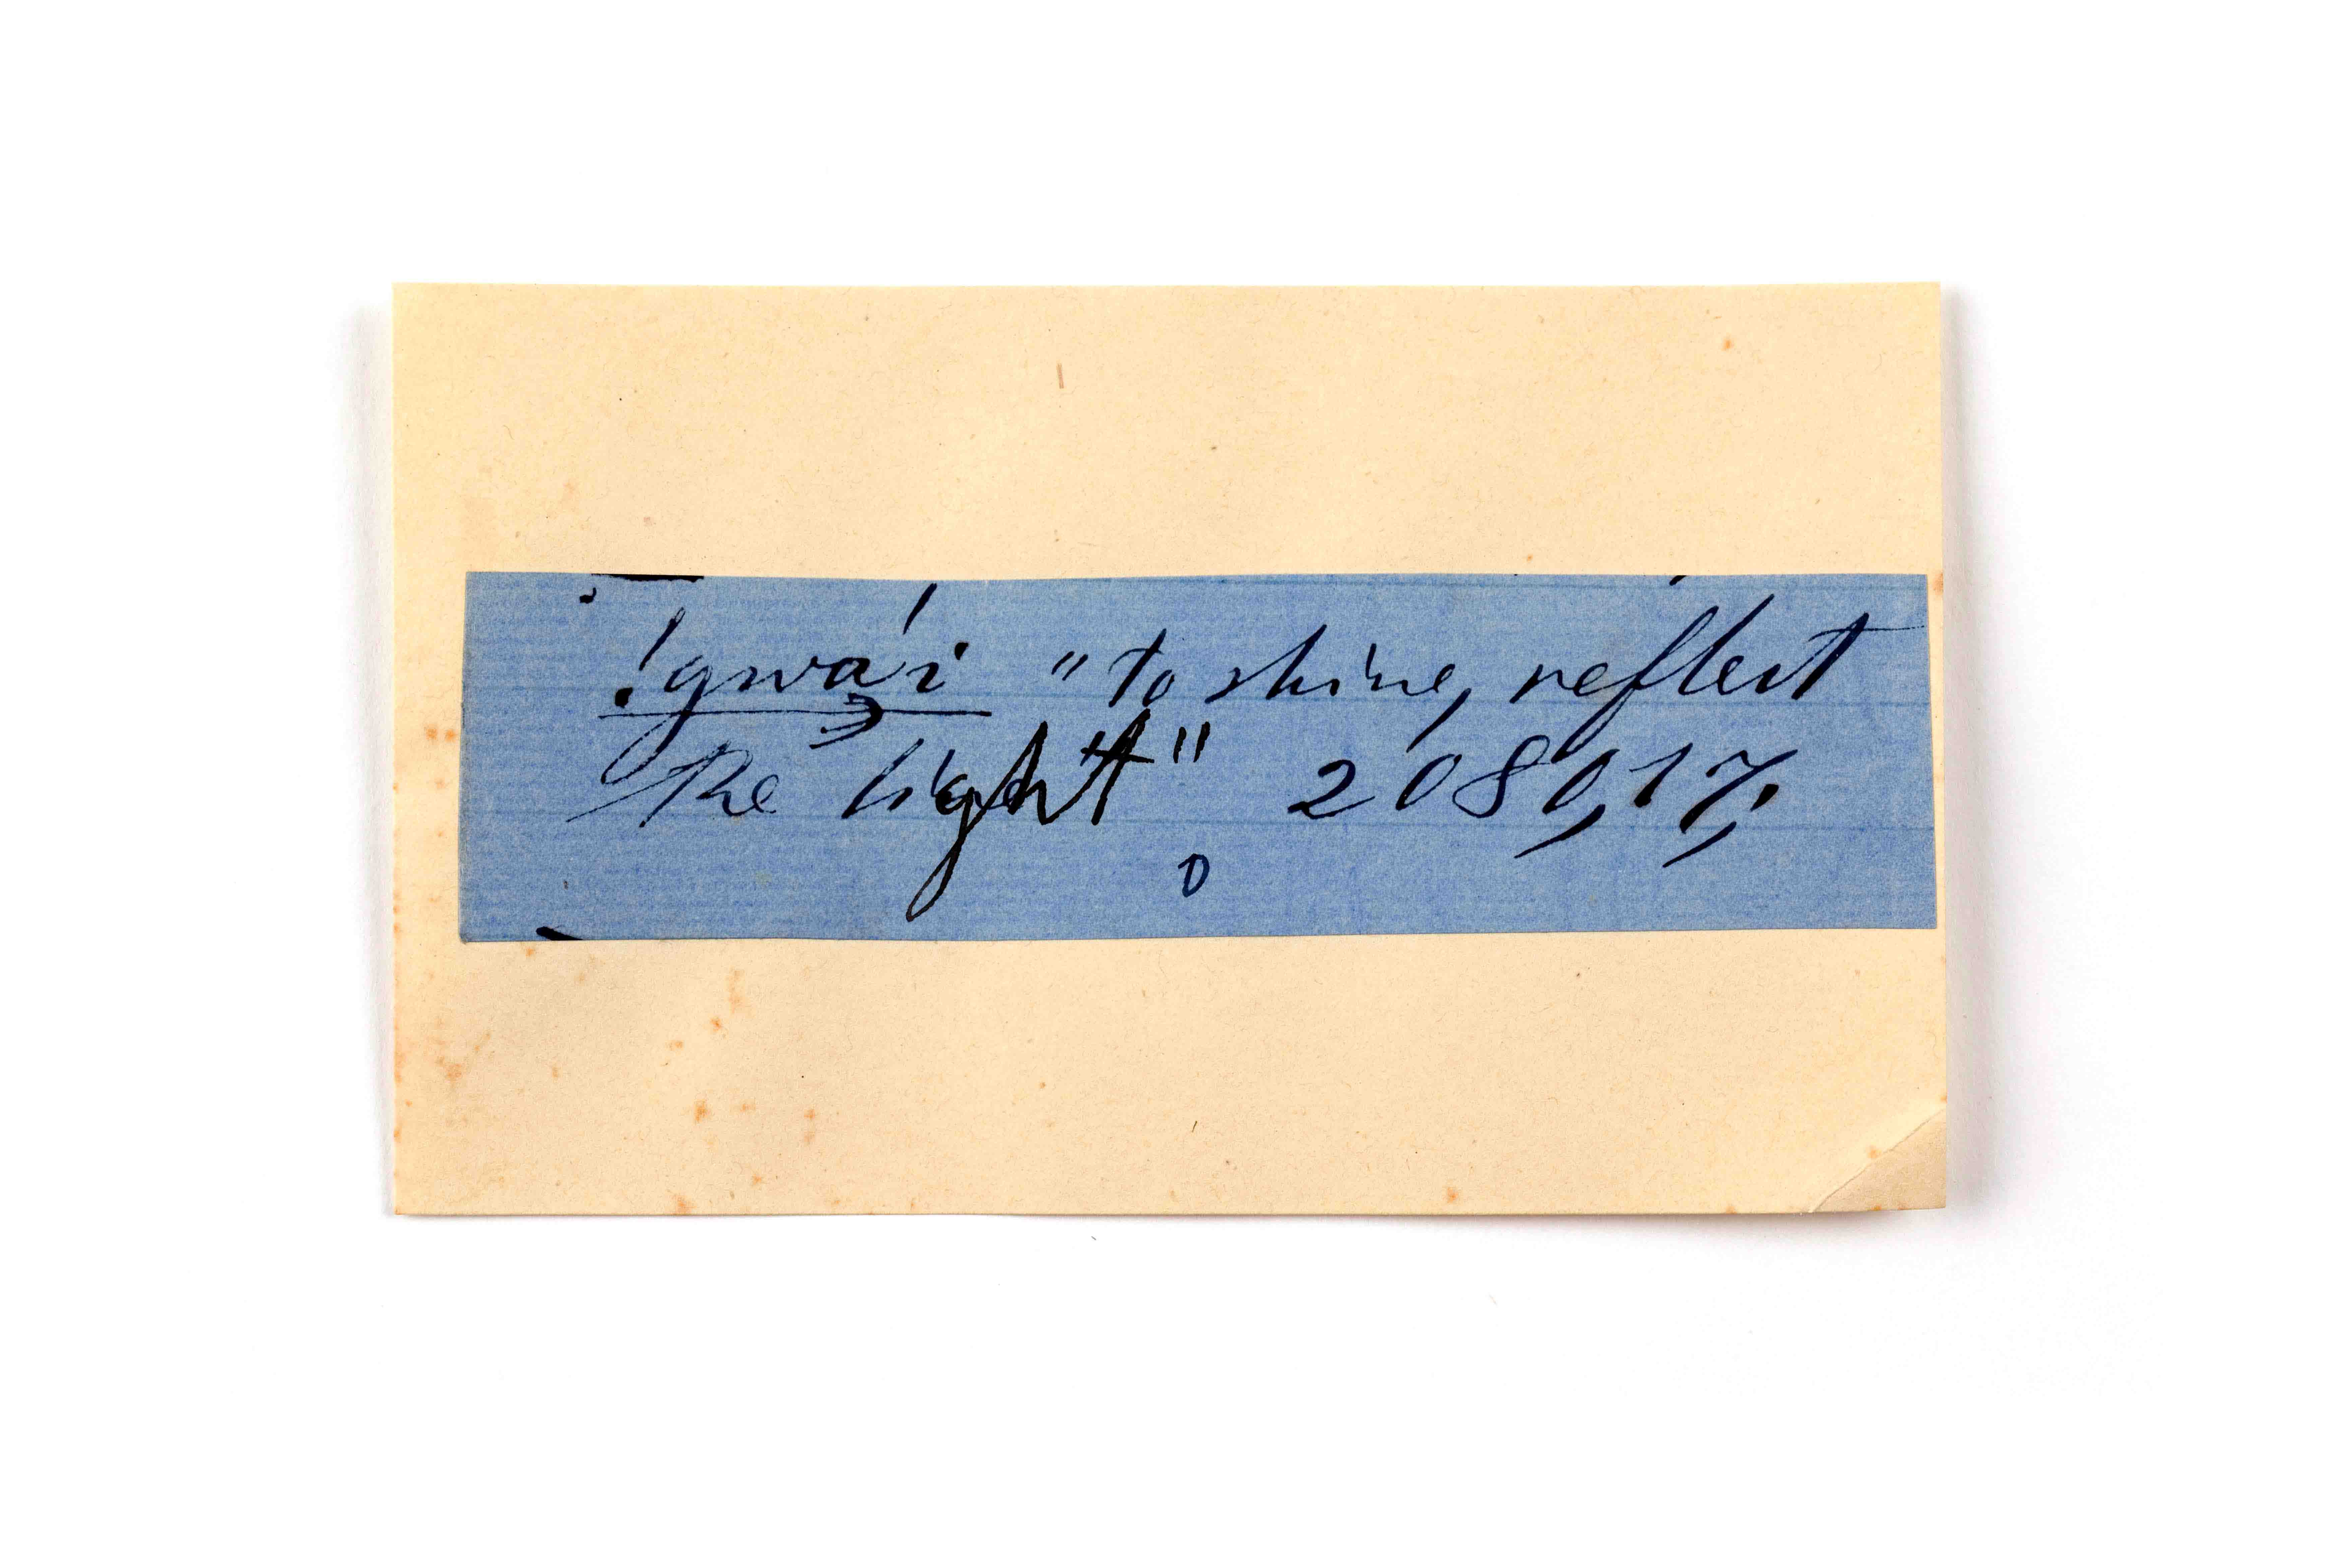 !gwa̧ʹi "to shine, reflect
the light" 2080,17,.
0